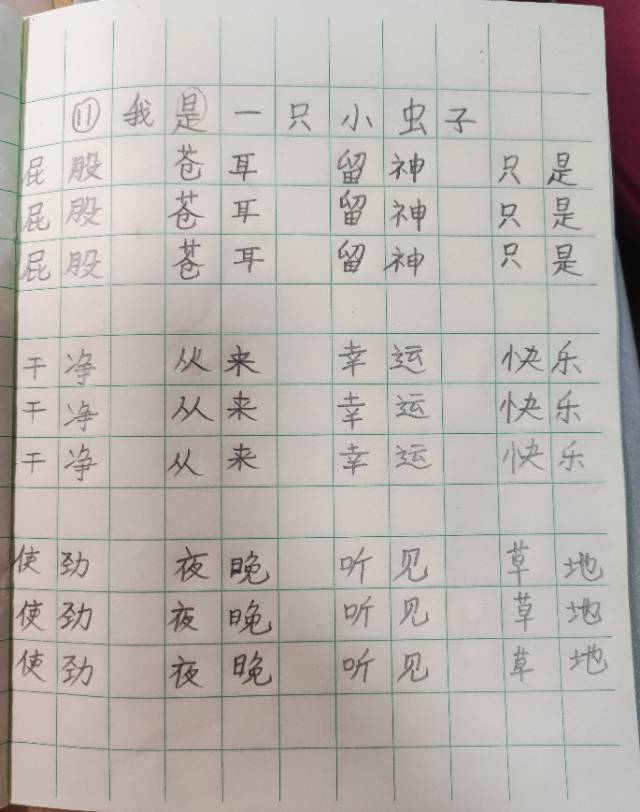 ⑪ 我是一只小虫子
屁股 苍耳 留神 只是
屁股 苍耳 留神 只是
屁股 苍耳 留神 只是
干净 从来 幸运 快乐
干净 从来 幸运 快乐
干净 从来 幸运 快乐
使劲 夜晚 听见 草地
使劲 夜晚 听见 草地
使劲 夜晚 听见 草地